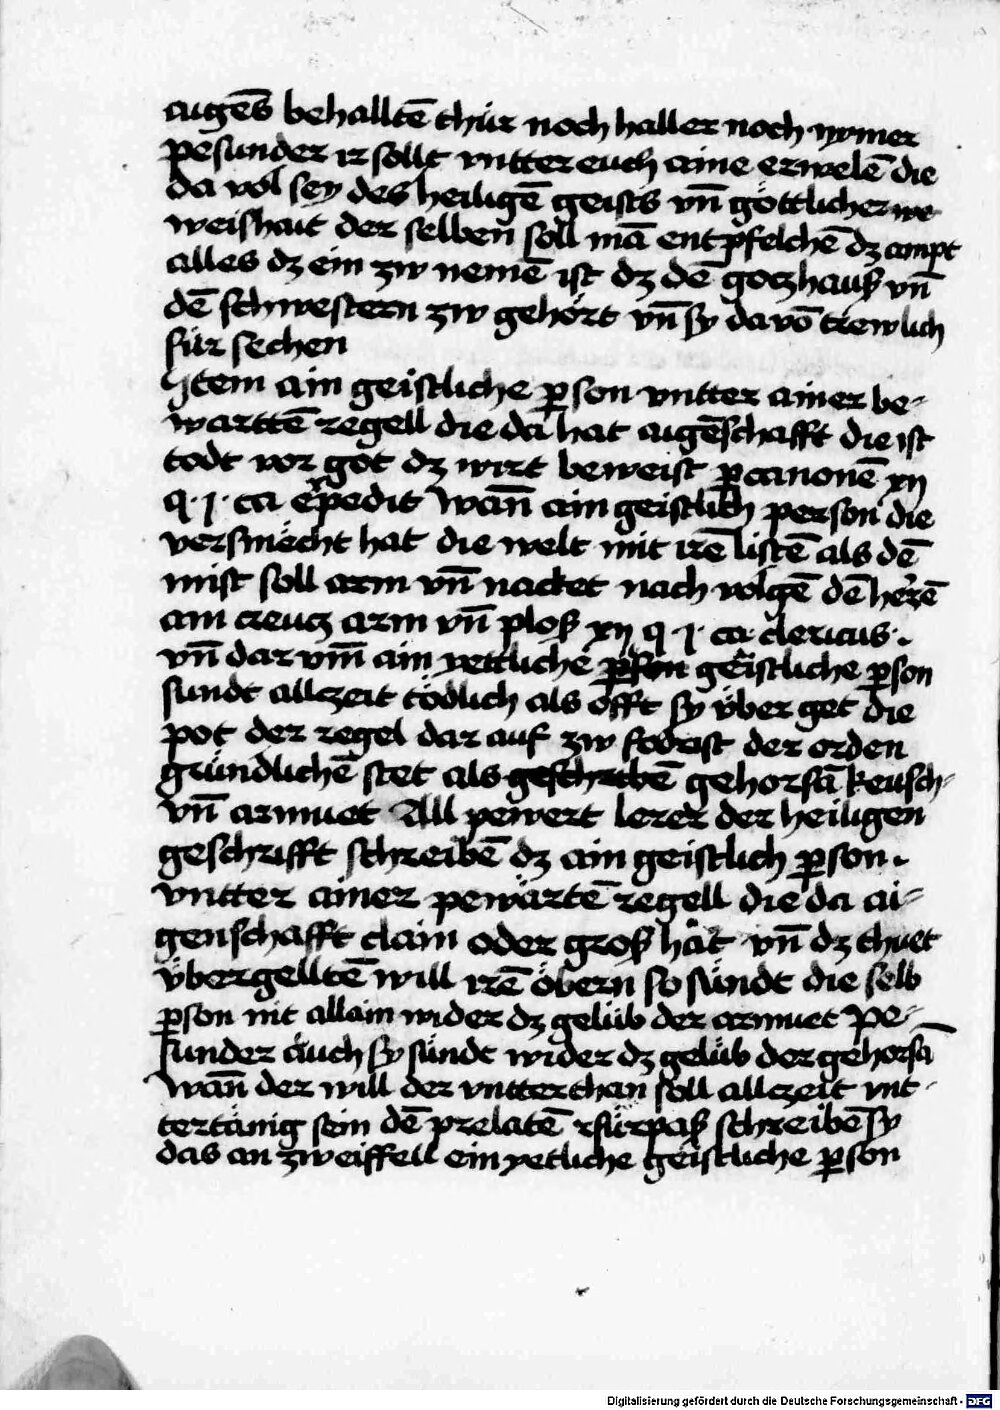 augēs behalltē thür noch haller noch nymer
pesunder ir sollt vntter euch aine erwelē die
da vol sey des heiligē geists vn̄ göttlicher we
weishait der selben soll mā entpfelchē dz ampt
alles dz ein zw nemē ist dz dē goczhauß vn̄
dē schwestern zw gehört vn̄ sy da vō trewlich
für sechen
Item ain geistliche ꝑson vntter ainer be-
warttē regell die da hat aigēschafft die ist
todt vor got dz wirt beweist ꝑ canonē xij
q · j · ca exꝑedit wān ain geistlich person die
versmächt hat die welt mit irē listē als dē
mist soll arm vn̄ nacket nach volgē dē herrē
am creucz arm vn̄ ploß xij q · j · ca clericus ·
vn̄ dar vm̄ ain yettliche ꝑson geistliche ꝑson
sundt allczeit tödlich als offt sy über get die
pot der regel dar auf zw fodrist der orden
gründlichē stet als geschribē gehorsā keusch-
vn̄ armuet All pewert lerer der heiligen
geschrifft schreibē dz ain geistlich ꝑson ·
vntter ainer pewärtē regell die da ai-
genschafft clain oder groß hāt vn̄ dz thuet
übergelltē will irē öbern so sündt die selb
ꝑson nit allain wider dz gelüb der armuet Pe-
sunder auch sy sündt wider dz gelüb der gehorsā
wān der will der vntterthan soll allczeit vnt-
tertänig sein dē prelatē fürpaß schreibē sy
das an zweiffell ein yetliche geistliche ꝑson
Digitalisierung gefördert durch die Deutsche Forschungsgemeinschaft - DFG